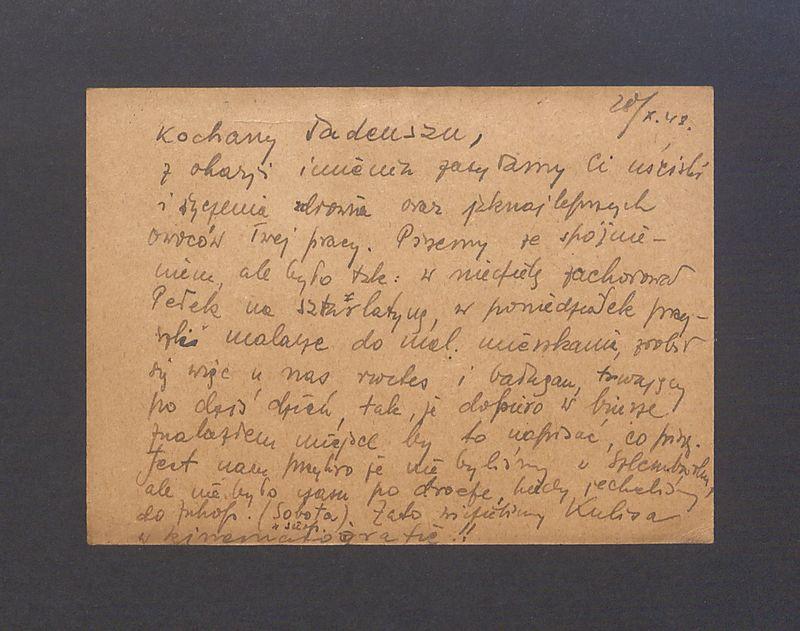 28/X.48.
Kochany Tadeuszu,
z okazji imienin zasyłamy Ci uściski
i życzenia zdrowia oraz jaknajlepszych
owoców Twej pracy. Piszemy ze spóźnie-
niem, ale było tak: w niedzielę zachorował
Pełek na szkarlatynę, w poniedziałek przy-
szli malarze do mal. mieszkania, zrobił
się więc u nas rwetes i bałagan, trwający
po dziś dzień, tak, że dopiero w biurze
znalazłem miejsce by to napisać, co piszę.
Jest nam przykro że nie byliśmy u
ale nie było czasu po drodze, kiedy jechaliśmy
do Zakop. (Sobota). Zato widzieliśmy Kulisa
w kinematografie!!